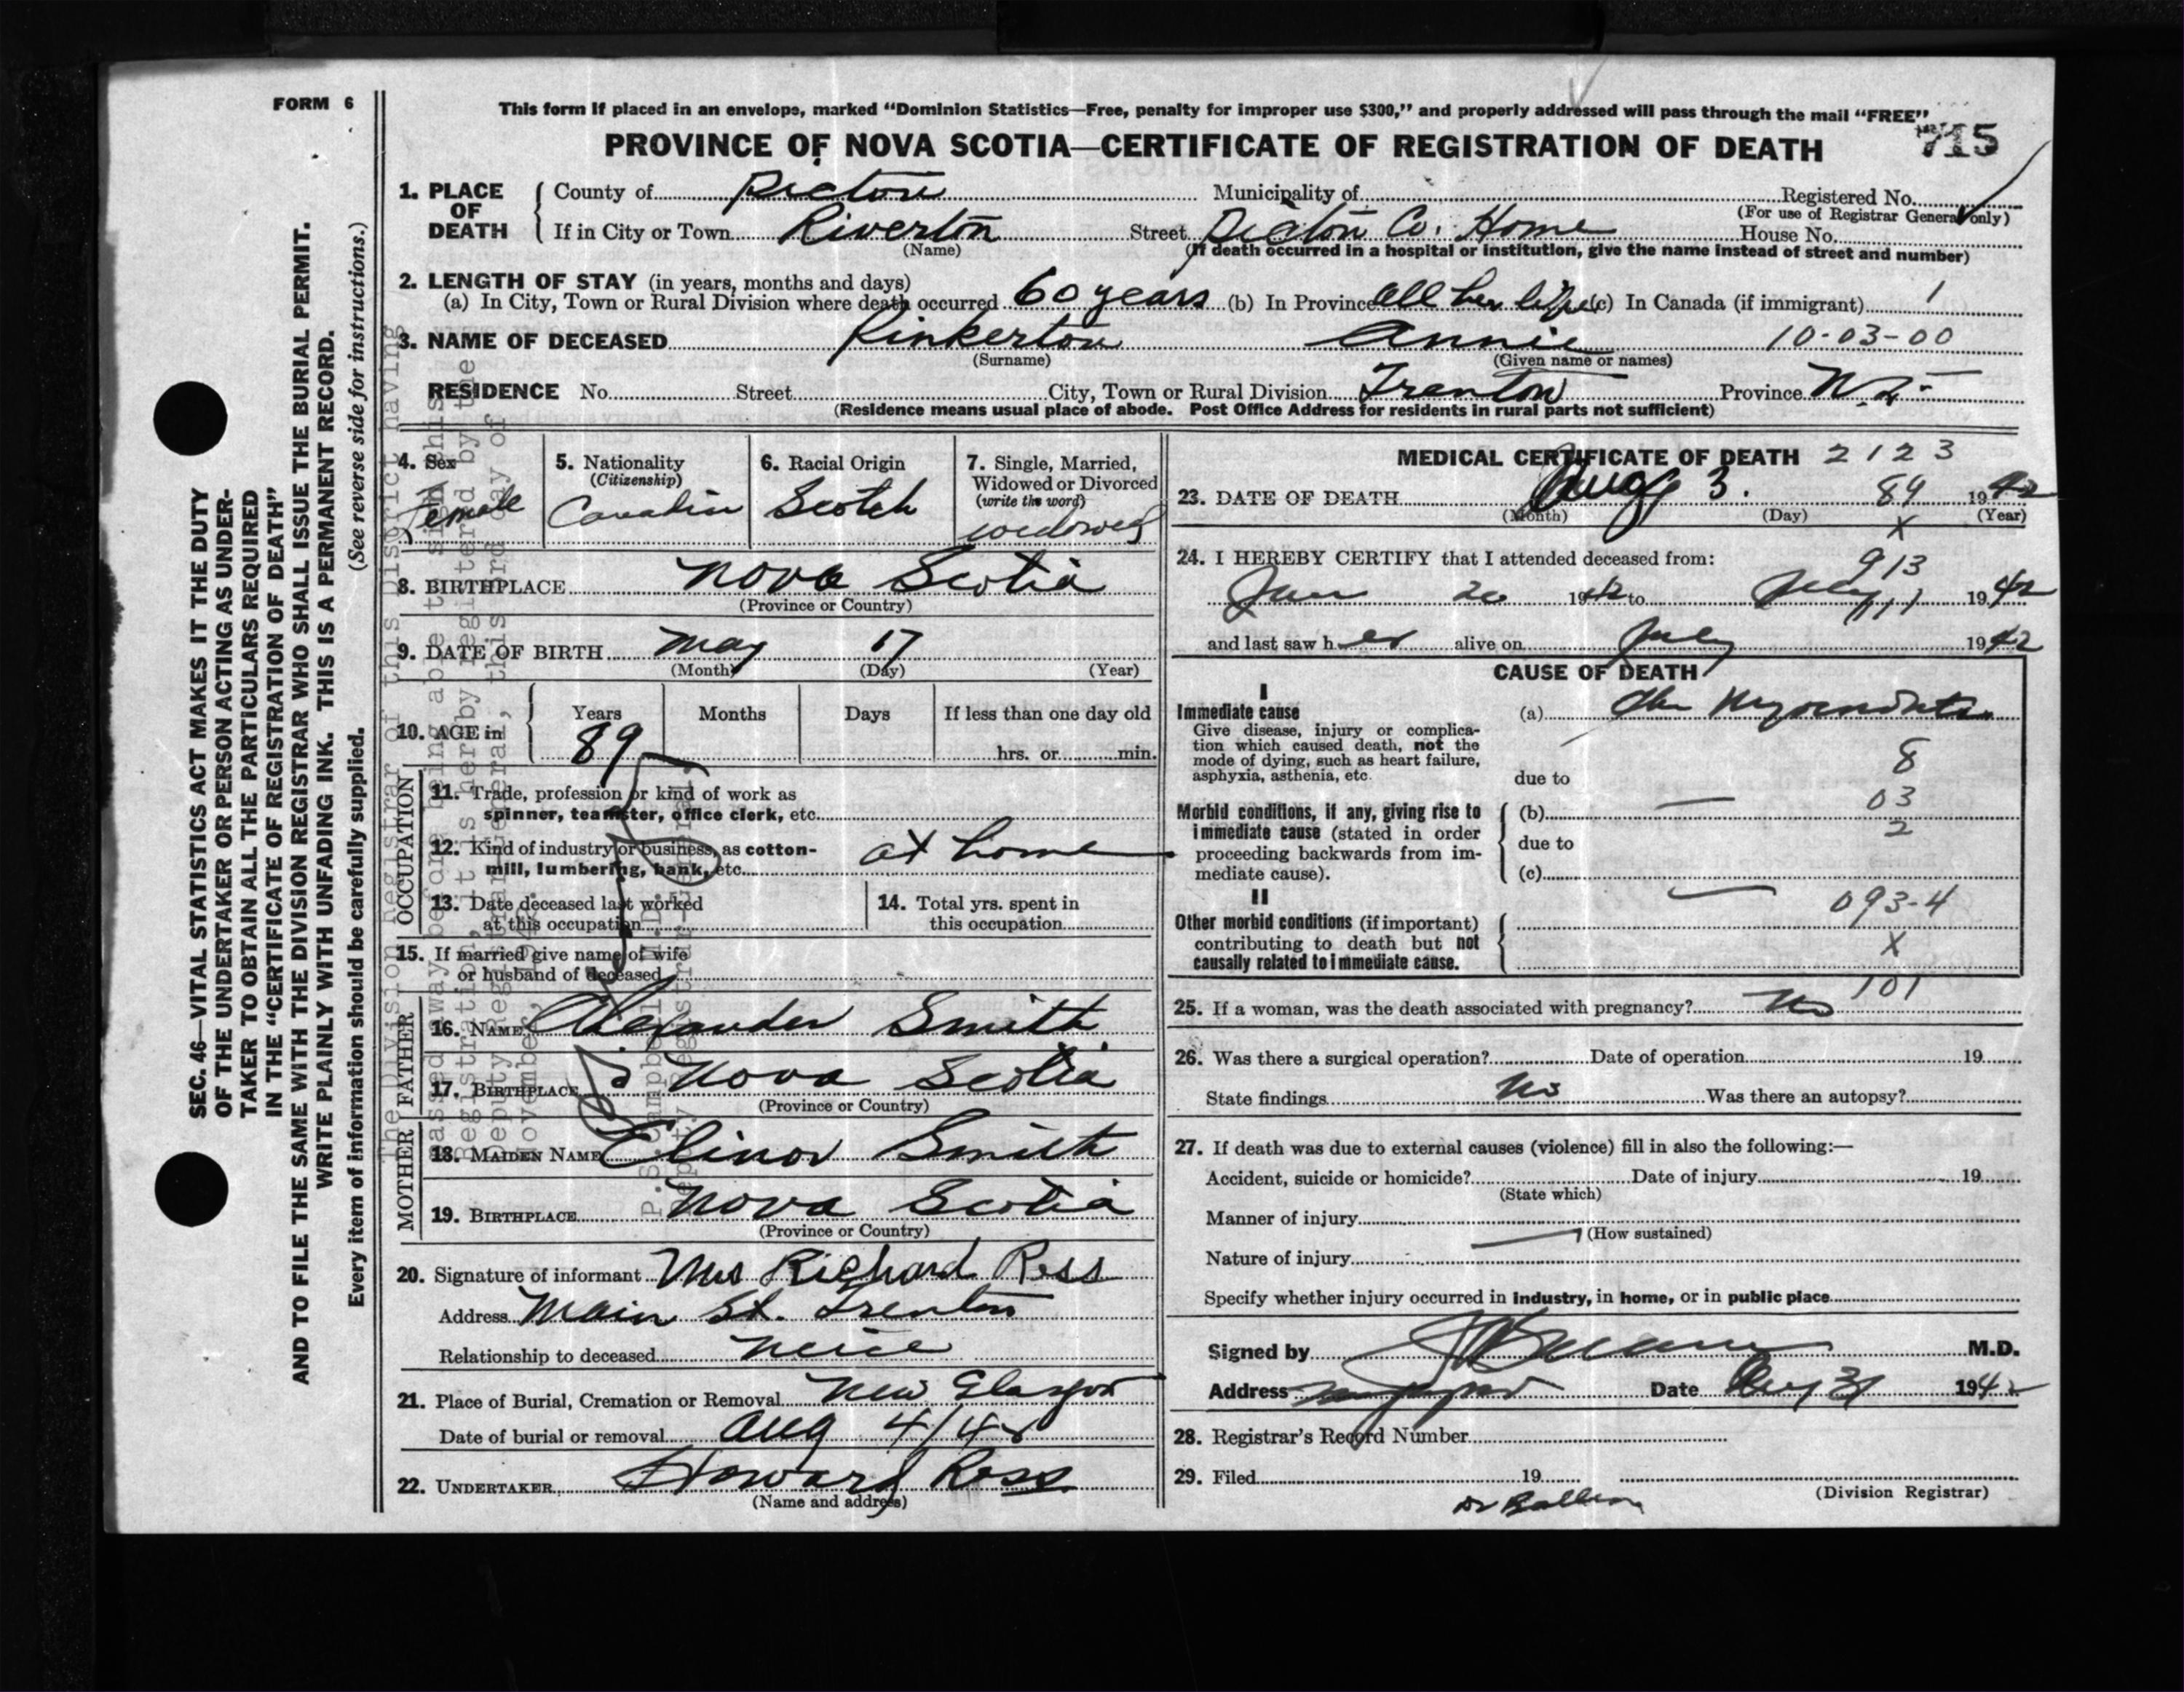 FORM 6
This form if placed in an envelope, marked “Dominion Statistics—Free, penalty for improper use $300,” and properly addressed will pass through the mail “FREE”
PROVINCE OF NOVA SCOTIA—CERTIFICATE OF REGISTRATION OF DEATH 715
SEC. 46—VITAL STATISTICS ACT MAKES IT THE DUTY
OF THE UNDERTAKER OR PERSON ACTING AS UNDER-
TAKER TO OBTAIN ALL THE PARTICULARS REQUIRED
IN THE “CERTIFICATE OF REGISTRATION OF DEATH”
AND TO FILE THE SAME WITH THE DIVISION REGISTRAR WHO SHALL ISSUE THE BURIAL PERMIT.
WRITE PLAINLY WITH UNFADING INK. THIS IS A PERMANENT RECORD.
Every item of information should be carefully supplied. (See reverse side for instructions.)
1. PLACE OF DEATH County of Pictou Municipality of Registered No.
(For use of Registrar General only)
If in City or Town Riverton Street Pictou Co. Home House No.
(Name) (If death occurred in a hospital or institution, give the name instead of street and number)
2. LENGTH OF STAY (in years, months and days)
(a) In City, Town or Rural Division where death occurred 60 years (b) In Province all her life (c) In Canada (if immigrant) 1
3. NAME OF DECEASED Pinkerton Annie 10-03-00
(Surname) (Given name or names)
RESIDENCE No. Street City, Town or Rural Division Trenton Province N.S.
(Residence means usual place of abode. Post Office Address for residents in rural parts not sufficient)
4. Sex
Female
5. Nationality
(Citizenship)
6. Racial Origin
Scotch
7. Single, Married,
Widowed or Divorced
(write the word)
widowed
8. BIRTHPLACE Nova Scotia
(Province or Country)
9. DATE OF BIRTH May 17
(Month) (Day) (Year)
10. AGE in Years Months Days If less than one day old
89 hrs. or min.
OCCUPATION
11. Trade, profession or kind of work as
spinner, teamster, office clerk, etc.
12. Kind of industry or business, as cotton-
mill, lumbering, bank, etc. at home
13. Date deceased last worked
at this occupation
14. Total yrs. spent in
this occupation
15. If married give name of wife
or husband of deceased
FATHER
16. NAME Alexander Smith
17. BIRTHPLACE Nova Scotia
(Province or Country)
MOTHER
18. MAIDEN NAME Elinor Smith
19. BIRTHPLACE Nova Scotia
(Province or Country)
20. Signature of informant Mrs Richard Ross
Address Main St. Trenton
Relationship to deceased neice
21. Place of Burial, Cremation or Removal New Glasgow
Date of burial or removal Aug 4/42
22. UNDERTAKER Howard Ross
(Name and address)
MEDICAL CERTIFICATE OF DEATH 2123
23. DATE OF DEATH Aug 3. 89 1942
(Month) (Day) (Year)
X
24. I HEREBY CERTIFY that I attended deceased from:
913
Jan 20 1942 to July 1942
and last saw her alive on July 1942
CAUSE OF DEATH
I
Immediate cause
Give disease, injury or complica-
tion which caused death, not the
mode of dying, such as heart failure,
asphyxia, asthenia, etc.
(a) Chr Myocarditis
8
due to
Morbid conditions, if any, giving rise to
immediate cause (stated in order
proceeding backwards from im-
mediate cause).
(b) — 03
2
due to
(c)
II
Other morbid conditions (if important)
contributing to death but not
causally related to immediate cause.
— 093-4
X
101
25. If a woman, was the death associated with pregnancy? No
26. Was there a surgical operation? Date of operation 19
State findings No Was there an autopsy?
27. If death was due to external causes (violence) fill in also the following:—
Accident, suicide or homicide? Date of injury 19
(State which)
Manner of injury
(How sustained)
Nature of injury
Specify whether injury occurred in industry, in home, or in public place
Signed by M.D.
Address Date Aug 3 1942
28. Registrar’s Record Number
29. Filed 19
(Division Registrar)